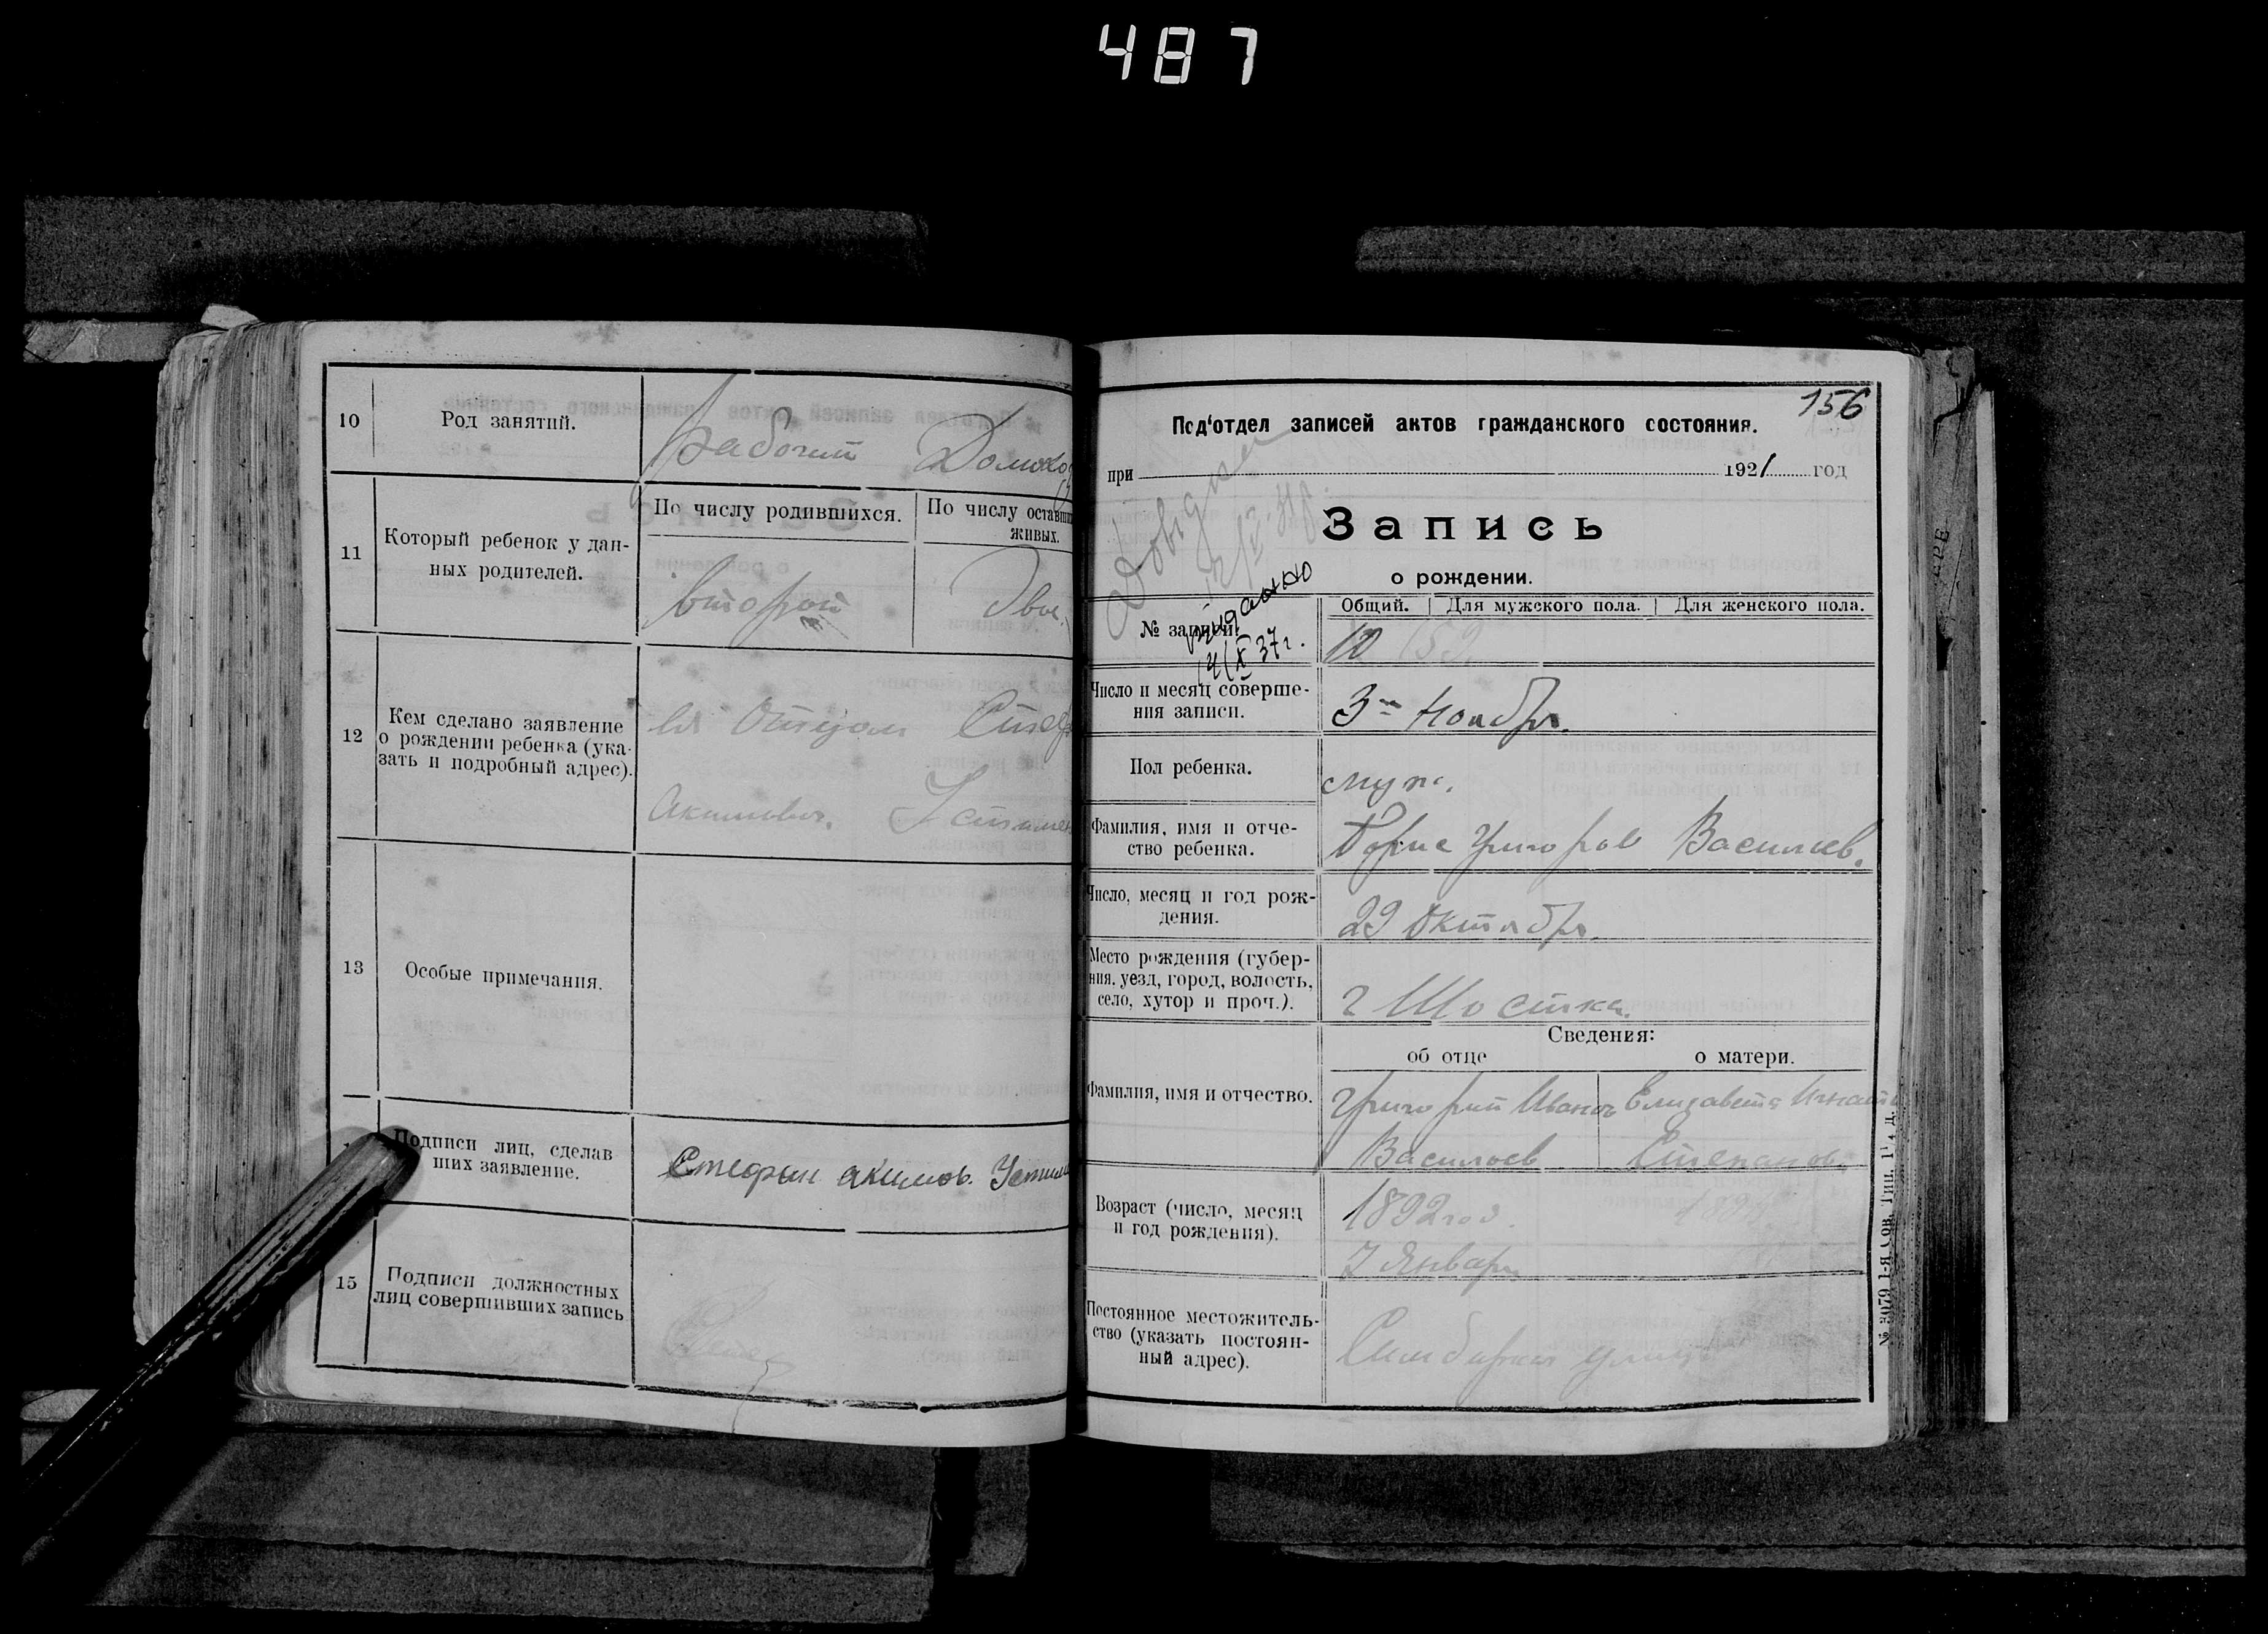 487
10
Род занятий.
рабочий
Домохо
11
Который ребенок у дан-
ных родителей.
По числу родившихся.
По числу оставши
живых.
второй
Двое.
12
Кем сделано заявление
о рождении ребенка (ука-
зать и подробный адрес).
Отцом Стеф
Акимович. Устимен
13
Особые примечания.
Подписи лиц, сделав
ших заявление.
Стефан акимов. Устим
15
Подписи должностных
лиц совершивших запись
156
Под'отдел записей актов гражданского состояния.
при 1921 год
Запись
о рождении.
Общий. Для мужского пола. Для женского пола.
№ записи.
выданно
14/X 37г.
10
Число и месяц соверше-
ния записи.
3го Ноября.
Пол ребенка.
муж.
Фамилия, имя и отче-
ство ребенка.
Борис Григоров Васильев.
Число, месяц и год рож-
дения.
29 Октября.
Место рождения (губер-
ния, уезд, город, волость,
село, хутор и проч.).
г Шостка.
Сведения:
об отце
о матери.
Фамилия, имя и отчество.
Григорий Иванов
Елизавета Игнать
Васильев
Степанова
Возраст (число, месяц
и год рождения).
1892 год.
7 Января
Постоянное местожитель-
ство (указать постоян-
ный адрес).
Симбирская улица
№ 3079 1-я Сов. Тип.